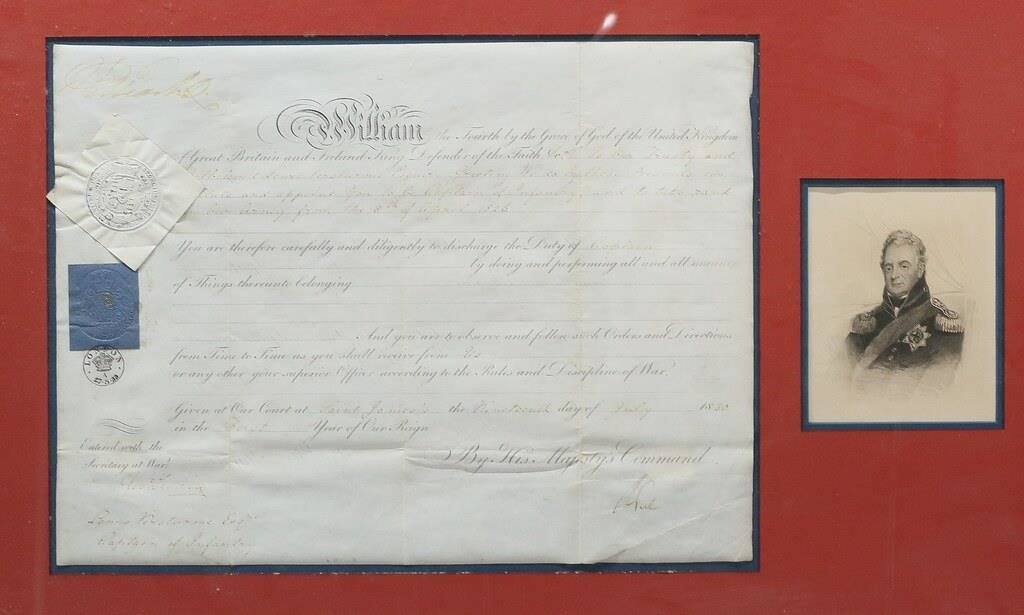 William the Fourth by the Grace of God of the United Kingdom
of Great Britain and Ireland King Defender of the Faith &c. To Our Trusty and
Greeting We do by these Presents con
and appoint you to be Captain of Infantry and to take rank
Our Army from the 8th of April 1826
You are therefore carefully and diligently to discharge the Duty of Captain
by doing and performing all and all manner
of Things thereunto belonging
And you are to observe and follow such Orders and Directions
from Time to Time as you shall receive from Us
or any other your superior Officer according to the Rules and Discipline of War.
Given at Our Court at Saint James's the Nineteenth day of July 1830
in the First Year of Our Reign
By His Majesty's Command
Peel
LONDON
Entered with the
Secretary at War
Esqr.
Captain of Infantry